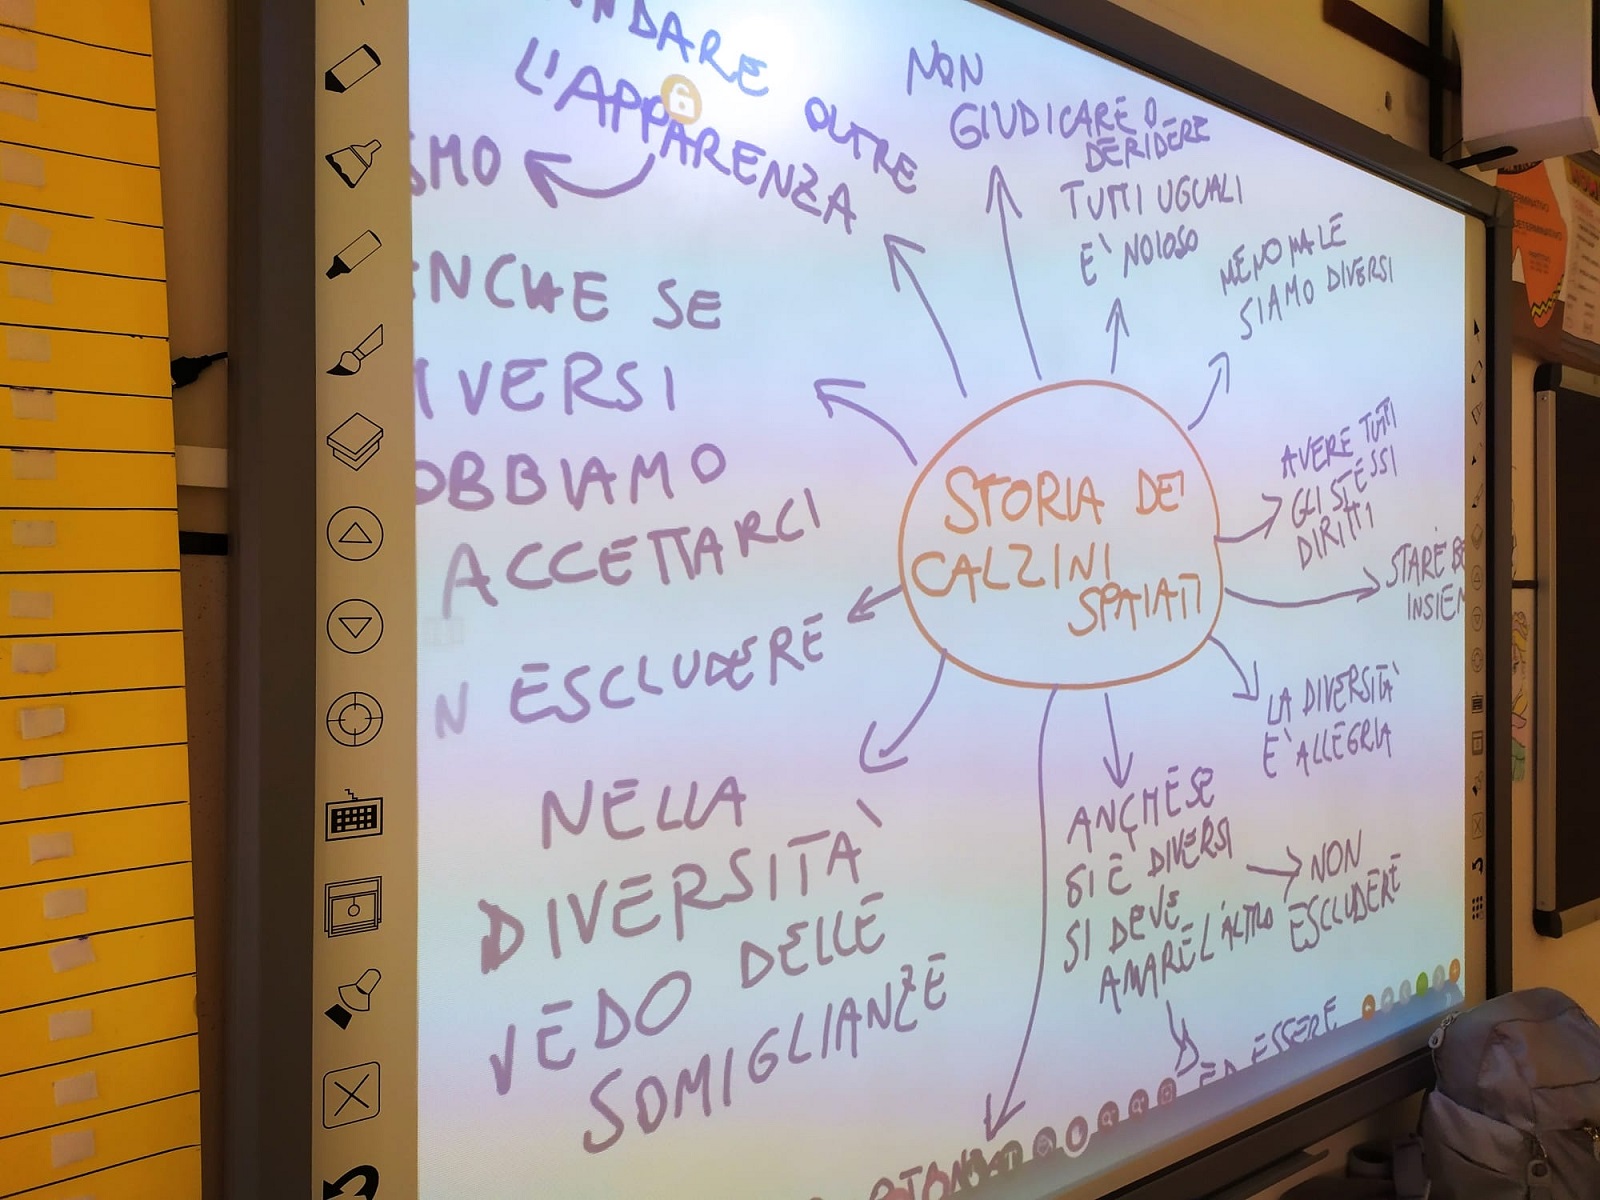 ANDARE OLTRE
L'APPARENZA
SMO
NON
GIUDICARE O
DERIDERE
TUTTI UGUALI
E' NOIOSO
MENO MALE
SIAMO DIVERSI
ANCHE SE
DIVERSI
DOBBIAMO
ACCETTARCI
STORIA DEI
CALZINI
SPAIATI
AVERE TUTTI
GLI STESSI
DIRITTI
STARE BE
INSIEM
N ESCLUDERE
LA DIVERSITA'
E' ALLEGRIA
NELLA
DIVERSITA'
VEDO DELLE
SOMIGLIANZE
ANCHE SE
SI E DIVERSI
SI DEVE
AMARE L'ALTRO
NON
ESCLUDERE
ED ESSERE